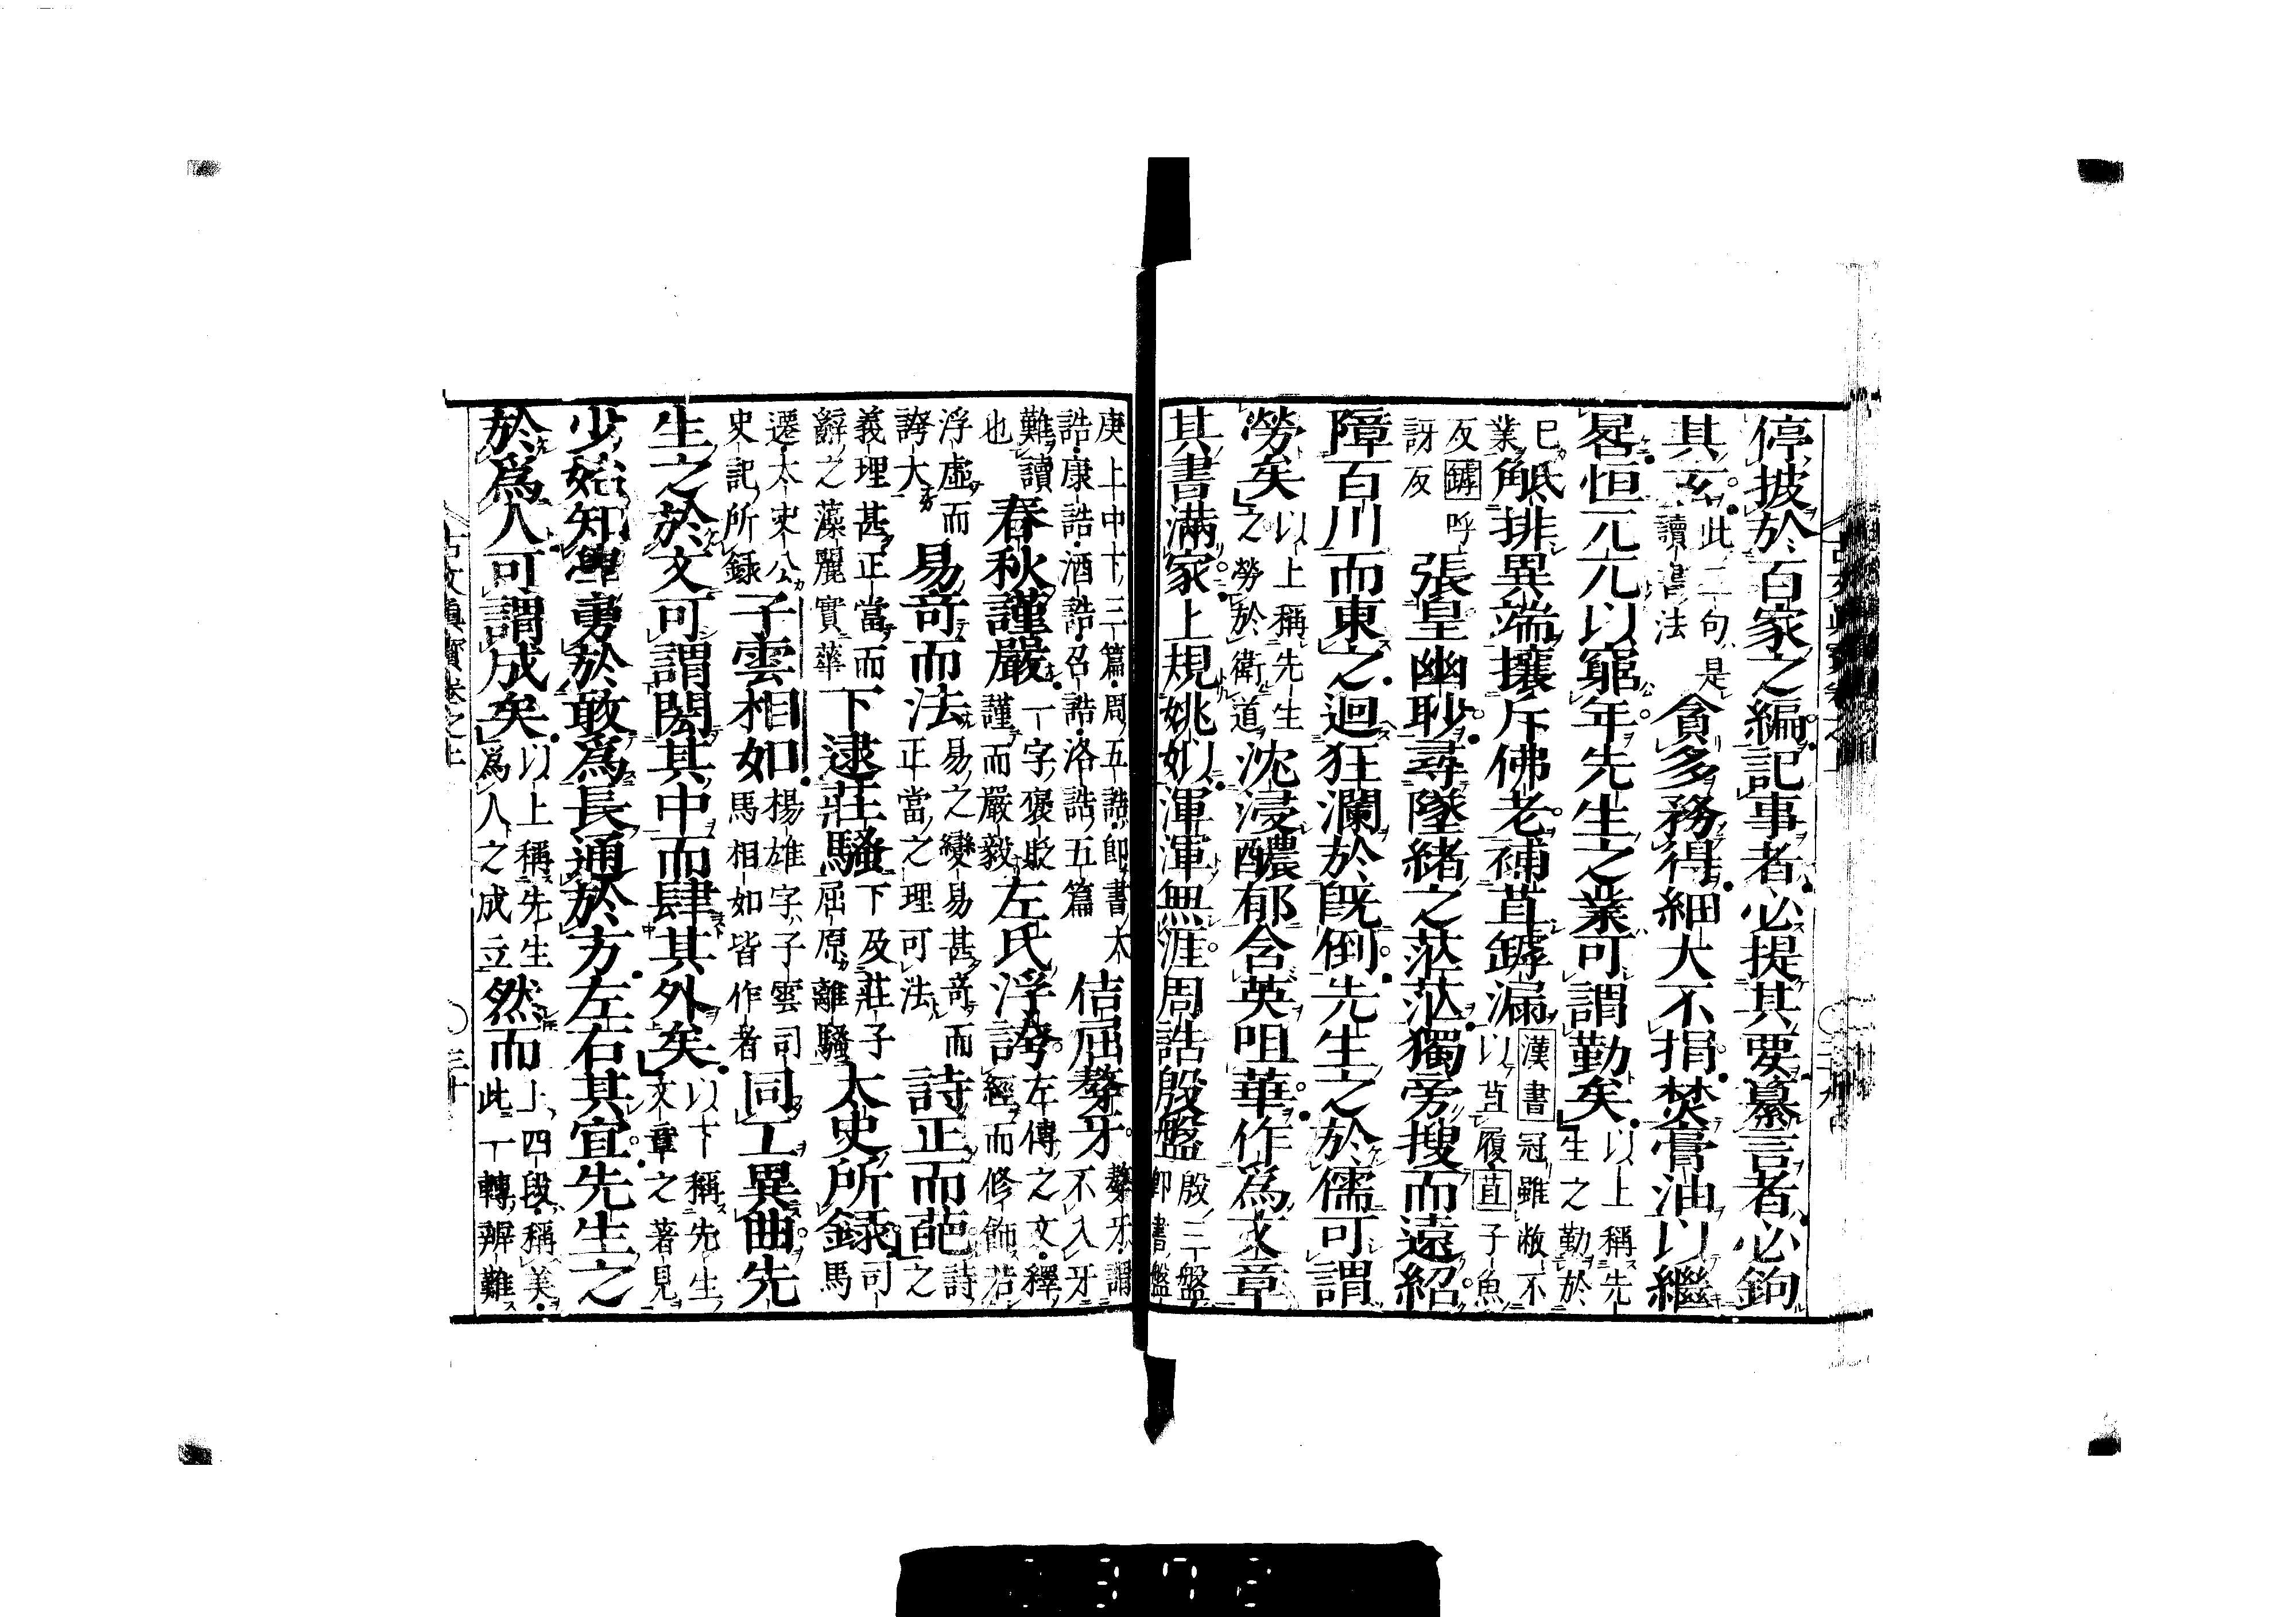 停披於百家之編記事者必提其要纂言者必鉤
其玄此二句是讀書法貪多務得細大不捐焚膏油以繼
晷恒兀兀以窮年先生之業可謂勤矣以上稱先生之勤於
業觝排異端攘斥佛老補苴罅漏漢書冠雖敝不以苴履苴子魚
反罅呼訝反張皇幽眇尋墜緒之茫茫獨旁搜而遠紹
障百川而東之迴狂瀾於既倒先生之於儒可謂
勞矣以上稱先生之勞於衛道沈浸醲郁含英咀華作爲文章
其書滿家上規姚姒渾渾無涯周誥殷盤殷三盤卽書盤
庚上中下三篇周五誥卽書大誥康誥酒誥召誥洛誥五篇佶屈聱牙聱牙謂不入牙
難讀也春秋謹嚴一字褒貶謹而嚴毅左氏浮誇左傳之文釋經而修飾若
浮虛而誇大易奇而法易之變易甚奇而正當之理可法詩正而葩詩之
義理甚正當而辭之藻麗實華下逮莊騷下及莊子屈原離騷太史所錄司馬
遷太史公史記所錄子雲相如楊雄字子雲司馬相如皆作者同工異曲先
生之於文可謂閎其中而肆其外矣以下稱先生文章之著見
少始知學勇於敢爲長通於方左右其宜先生之
於爲人可謂成矣以上稱先生爲人之成立然而上四段稱美此一轉辨難
古文眞寶卷之上
三十